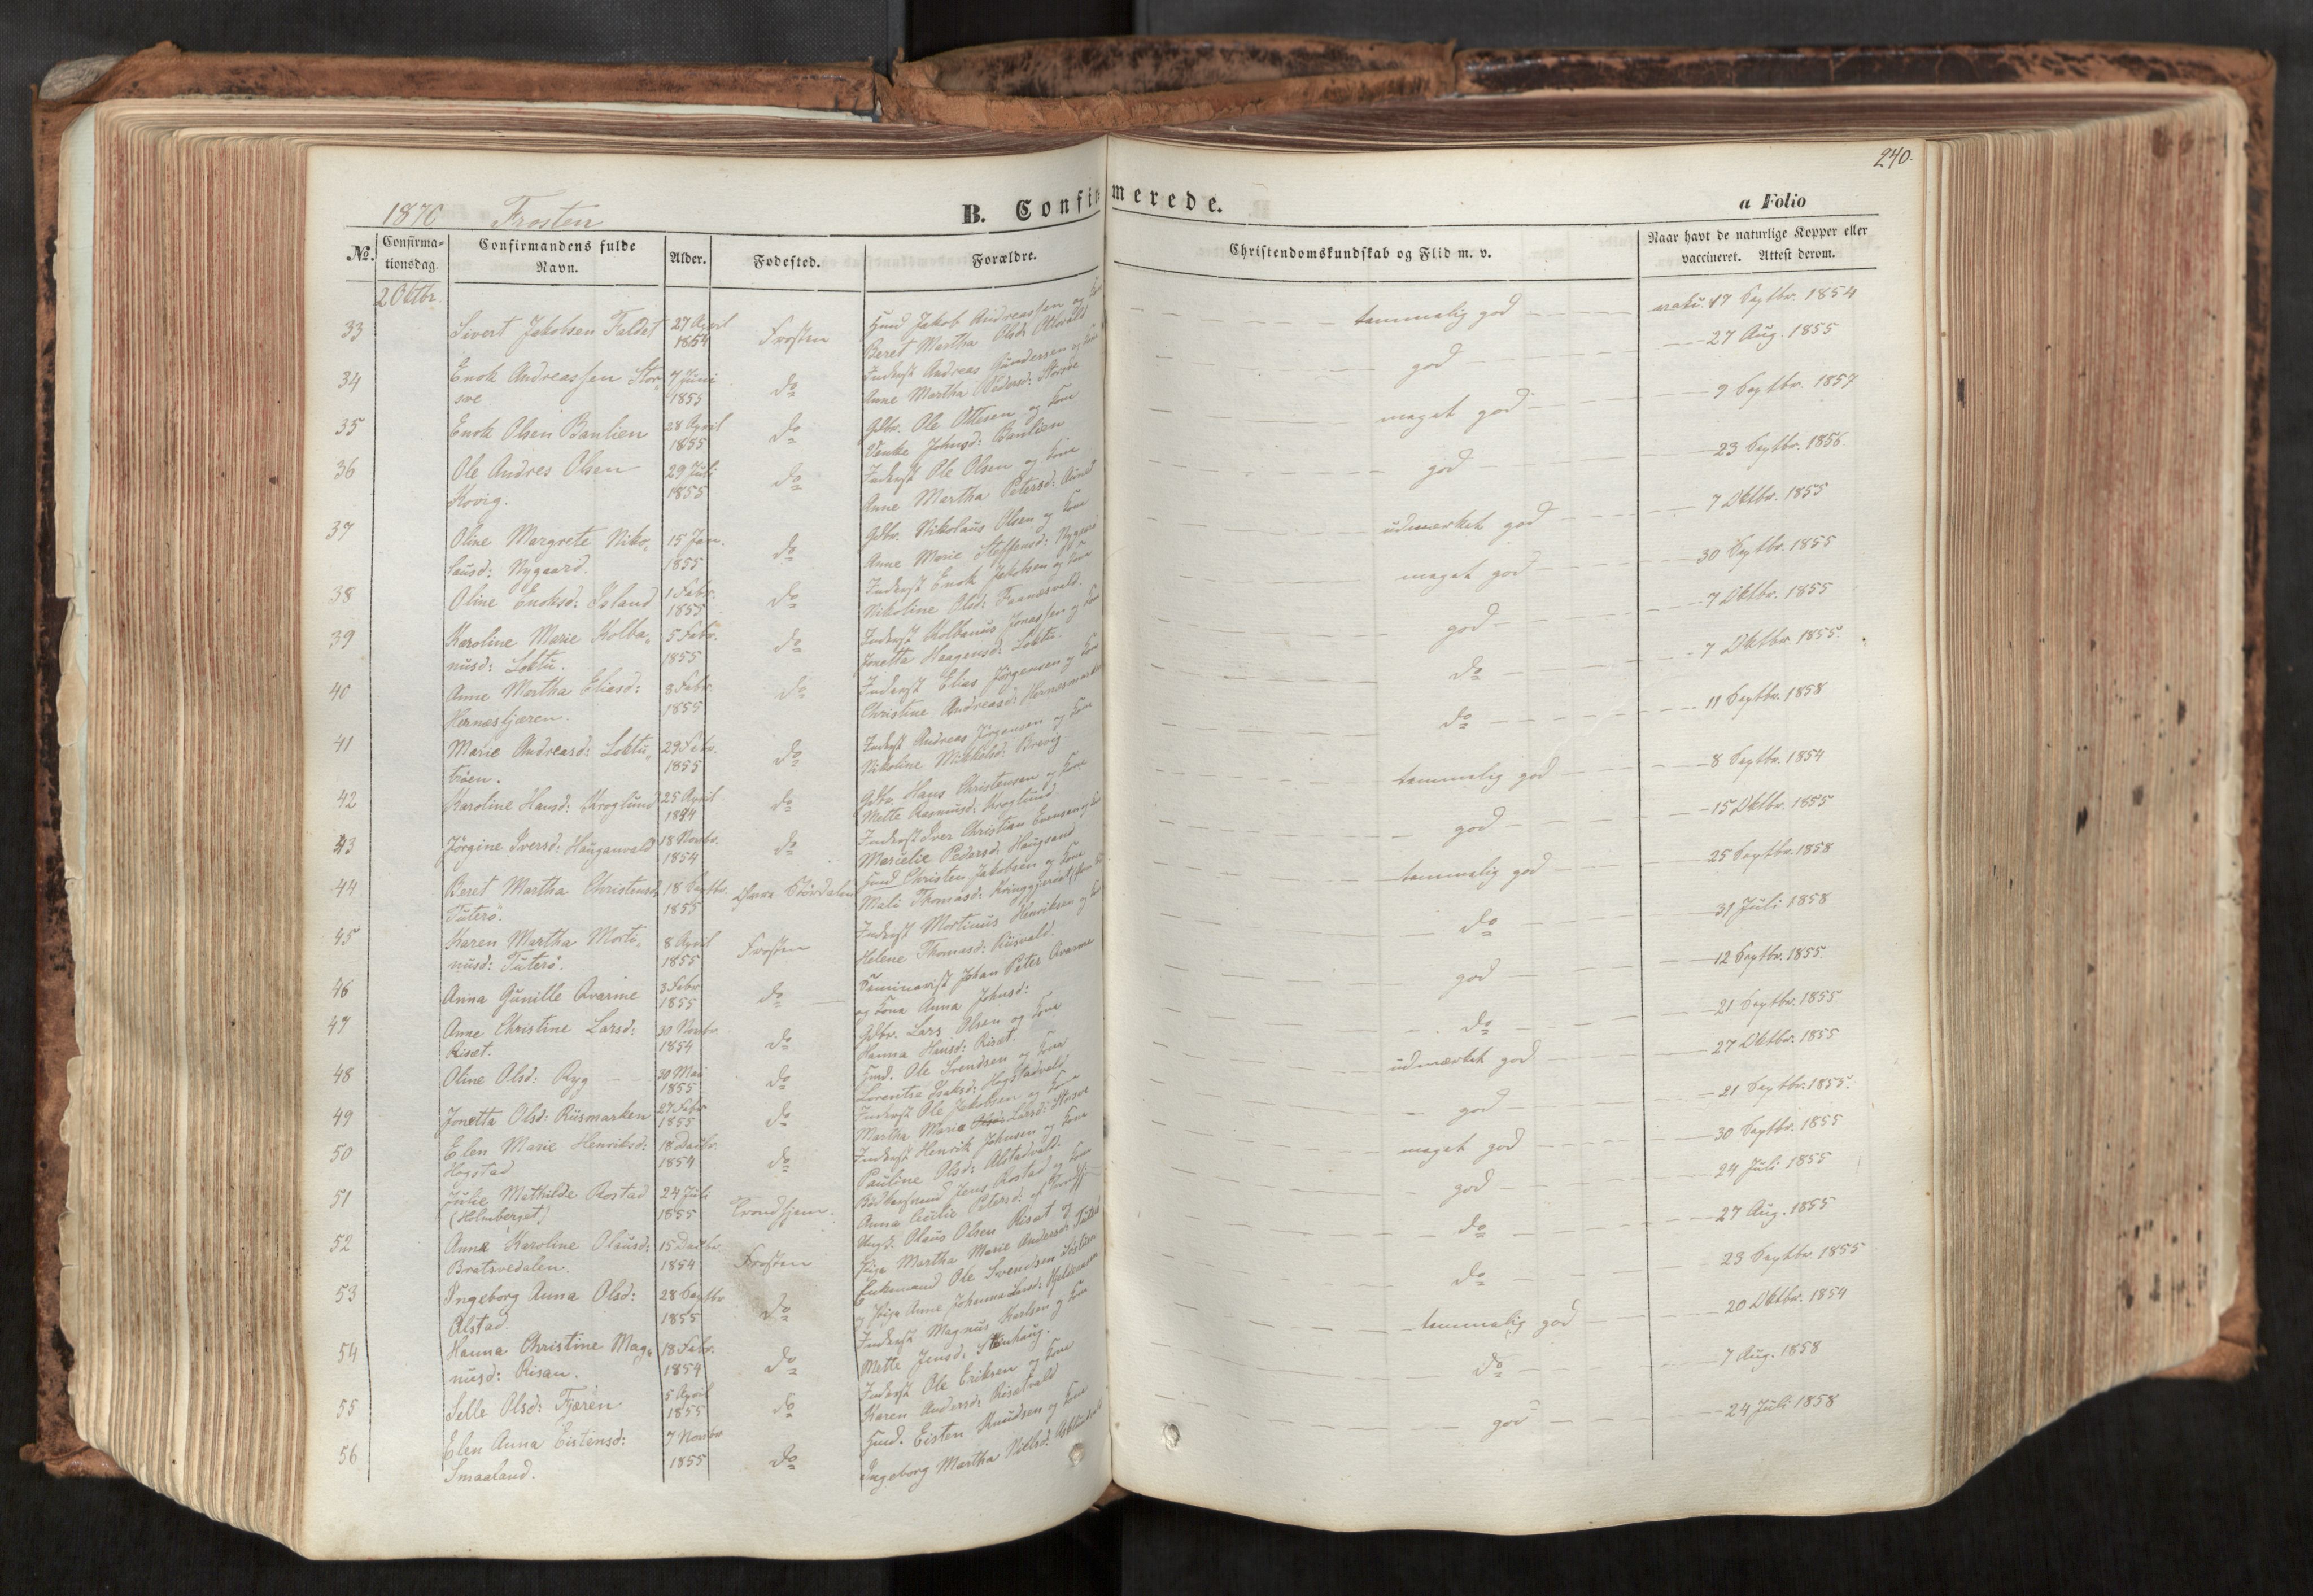 240.
1870 Frosten
B. Confirmerede.
a Folio
No. Confirmationsdag. Confirmandens fulde Navn. Alder. Fødested. Forældre. Christendomskundskab og Flid m. v. Naar havt de naturlige Kopper eller vaccineret. Attest derom.
2 Oktbr.
33 Sivert Jakobsen Faldet 27 April 1854 Frosten Huusd Jakob Andreassen og Kone Beret Martha Olsd: temmelig god 17 Septbr. 1854
34 Enok Andreassen Storøve 7 Juni 1855 do Inderst Andreas Gundersen og Kone Anne Martha Pedersd: Storøve god 27 Aug. 1855
35 Enok Olsen Banlien 28 April 1855 do Gdbr. Ole Ottesen og Kone Venke Johnsd: Banlien meget god 9 Septbr. 1857
36 Ole Andres Olsen Kovig. 29 Juli 1855 do Inderst Ole Olsen og Kone Anne Martha Petersd: god 23 Septbr. 1856
37 Oline Margrete Nikolausd: Nygaard. 15 Jan. 1855 do Gdbr. Nikolaus Olsen og Kone Anne Marie Steffensd: Nygaard udmærket god 7 Oktbr. 1855
38 Oline Enoksd: Island 1 Febr. 1855 do Inderst Enok Jakobsen og Kone Nikoline Olsd: meget god 30 Septbr. 1855
39 Karoline Marie Kolbanusd: Loktu. 5 Febr. 1855 do Inderst Kolbanus Jonassen og Kone Jonetta Haagensd: Loktu. god 7 Oktbr. 1855
40 Anne Martha Eliasd: Hernæsfjæren. 8 Febr. 1855 do Inderst Elias Jørgensen og Kone Christine Andreasd: do 7 Oktbr 1855
41 Marie Andreasd: Loktutrøen. 29 Febr. 1855 do Inderst Andreas Jørgensen og Kone Nikoline Mikkelsd: Brevig do 11 Septbr. 1858
42 Karoline Hansd: Kroglund 25 April 1854 do Gdbr. Hans Christensen og Kone Mette Rasmusd: Kroglund temmelig god 8 Septbr. 1854
43 Jørgine Iversd: Hauganvald 18 Novbr. 1854 do Inderst Iver Christian Evensen og Kone Marielie Pedersd: Haugsand god 15 Oktbr. 1855
44 Beret Martha Christensd: Tuterø. 18 Septbr. 1855 Øvre Stördalen Huusd Christen Jakobsen og Kone Mali Thomasd: temmelig god 25 Septbr. 1858
45 Karen Martha Mortinusd: Tuterø. 8 April 1855 Frosten Inderst Mortinus Henriksen og Kone Helene Thomasd: Riisvald. do 31 Juli 1858
46 Anna Gunille Avarme 3 Febr 1855 do Seminarist Johan Peter Avarme og Kone Anna Johnsd: god 12 Septbr. 1855
47 Anne Christine Larsd: Risæt. 30 Novbr. 1854 do Gdbr. Lars Olsen og Kone Hanna Hansd: Risæt. do 21 Septbr. 1855
48 Oline Olsd: Ryg 30 Mai 1855 do Huusd. Ole Svendsen og Kone Lorentse Isaksd: Hogstadvald udmærket god 27 Oktbr. 1855
49 Jonetta Olsd: Riismarken 27 Febr 1855 do Inderst Ole Jakobsen og Kone Martha Maria Larsd: Storøve god 21 Septbr. 1855.
50 Elen Marie Henriksd: Hogstad 18 Decbr. 1854 do Inderst Henrik Johnsen og Kone Pauline Olsd: Alstadvald. meget god 30 Septbr. 1855
51 Julie Mathilde Rostad (Holmberget) 24 Juli 1855 Trondhjem. Jens Rostad og Kone Anna Cecilie Petersd: god 24 Juli 1855
52 Anna Karoline Olausd: Bratsvedalen. 15 Decbr. 1854 Frosten Ungk. Olaus Olsen Risæt og Pige Martha Marie Andersd: do 27 Aug. 1855
53 Ingeborg Anna Olsd: Alstad. 28 Septbr 1855 do Enkemand Ole Svendsen og Pige Anne Johanna Larsd: do 23 Septbr 1855
54 Hanna Christine Magnusd: Risan. 18 Febr. 1854 do Inderst Magnus Karlsen og Kone Mette Jensd: Stenhaug. temmelig god 20 Oktbr. 1854
55 Selle Olsd: Fjæren 5 April 1855 do Inderst Ole Eriksen og Kone Karen Andersd: Risætvald do 7 Aug. 1858
56 Elen Anna Eistensd: Smaaland. 7 Novbr 1855 do Huusd. Eisten Knudsen og Kone Ingeborg Martha Nielsd: god 24 Juli 1858